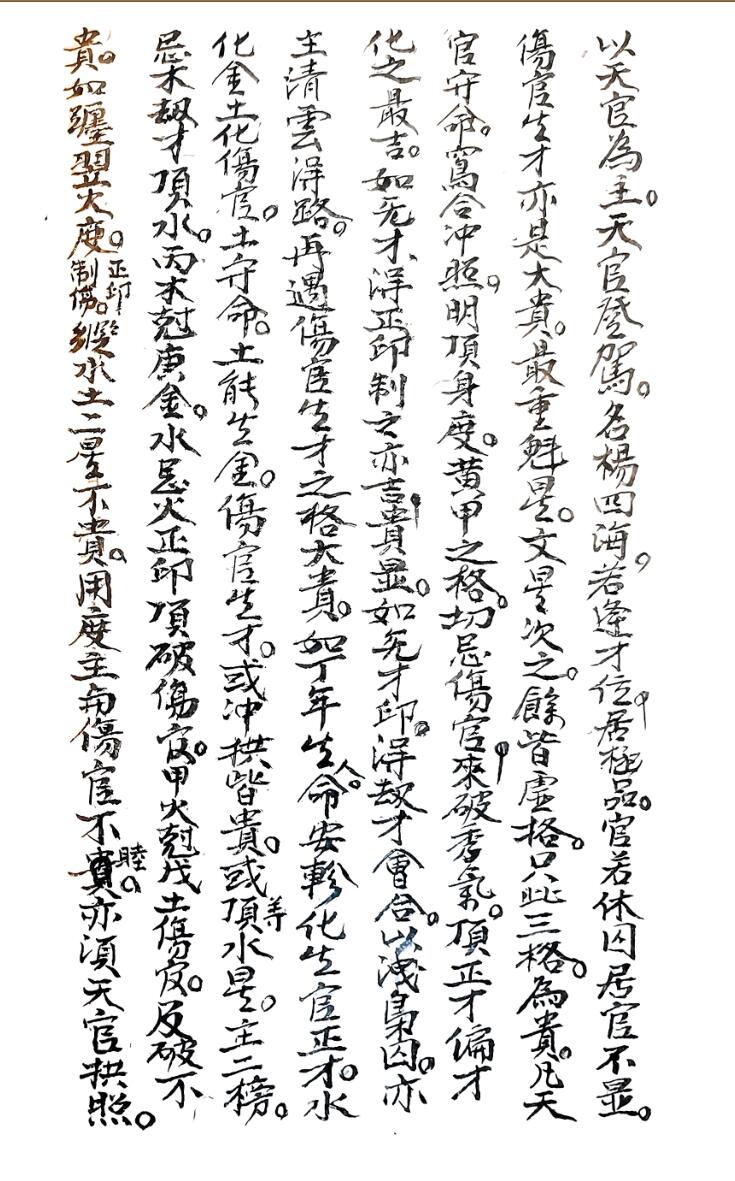 以天官為主。天官登駕。名楊四海。若逢才位。居極品。官若休囚居官不显。
傷官生才亦是大貴。最重魁星。文星次之。餘皆虛格。只此三格。為貴。凡天
官守命。寫合冲照。明頂身度。黄甲之格。切忌傷官來破秀氣。頂正才偏才
化之最吉。如无才。淂正印制之亦吉貴显。如无才印。淂刼才會合。以洩梟囚。亦
主清雲淂路。再遇傷官生才之格大貴。如丁年生人。命安軫化生官正才。水
化金土化傷官。土守命。土能生金。傷官生才。或冲拱皆貴。或頂等水星。主二榜。
忌木刼才頂水。丙木尅庚金。水忌火正印頂破傷官。甲火尅戊土傷官。反破不
貴。如躔翌火度。正印制傷。縱水土二星不貴。用度主与傷官不睦。亦須天官拱照。